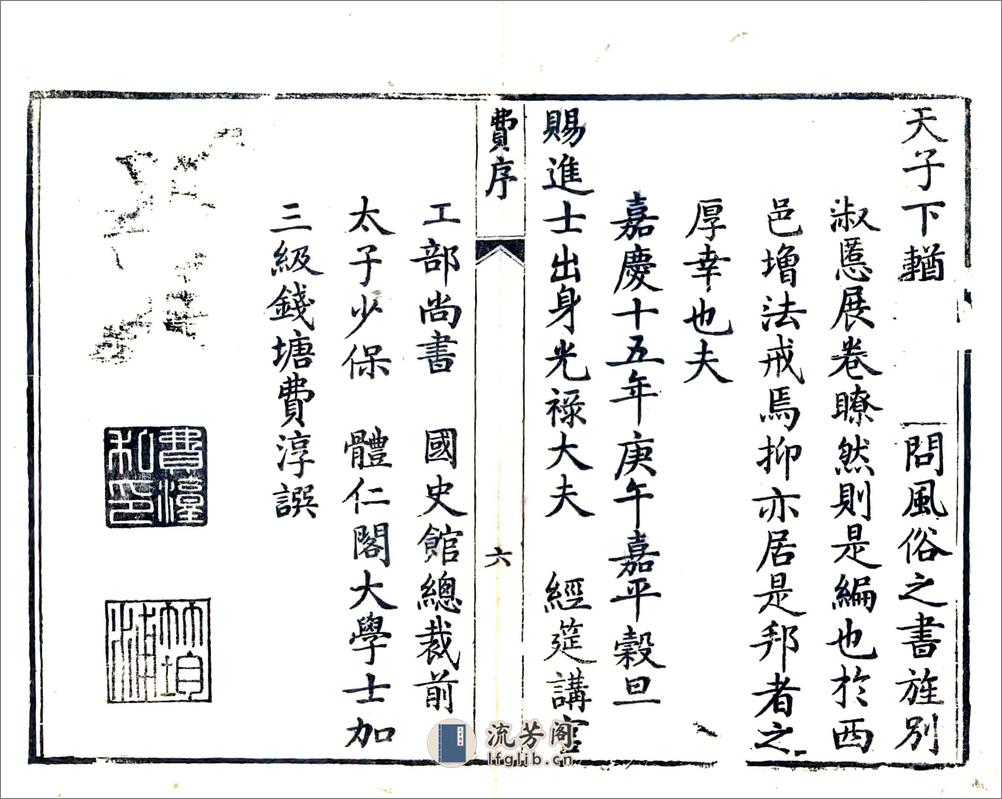 天子下輶　問風俗之書旌別
淑慝展卷瞭然則是編也於西
邑增法戒焉抑亦居是邦者之
厚幸也夫
嘉慶十五年庚午嘉平穀旦
賜進士出身光祿大夫　經筵講官
費序
六
工部尚書　國史館總裁前
太子少保　體仁閣大學士加
三級錢塘費淳譔
費淳私印
流芳阁
lfglib.cn